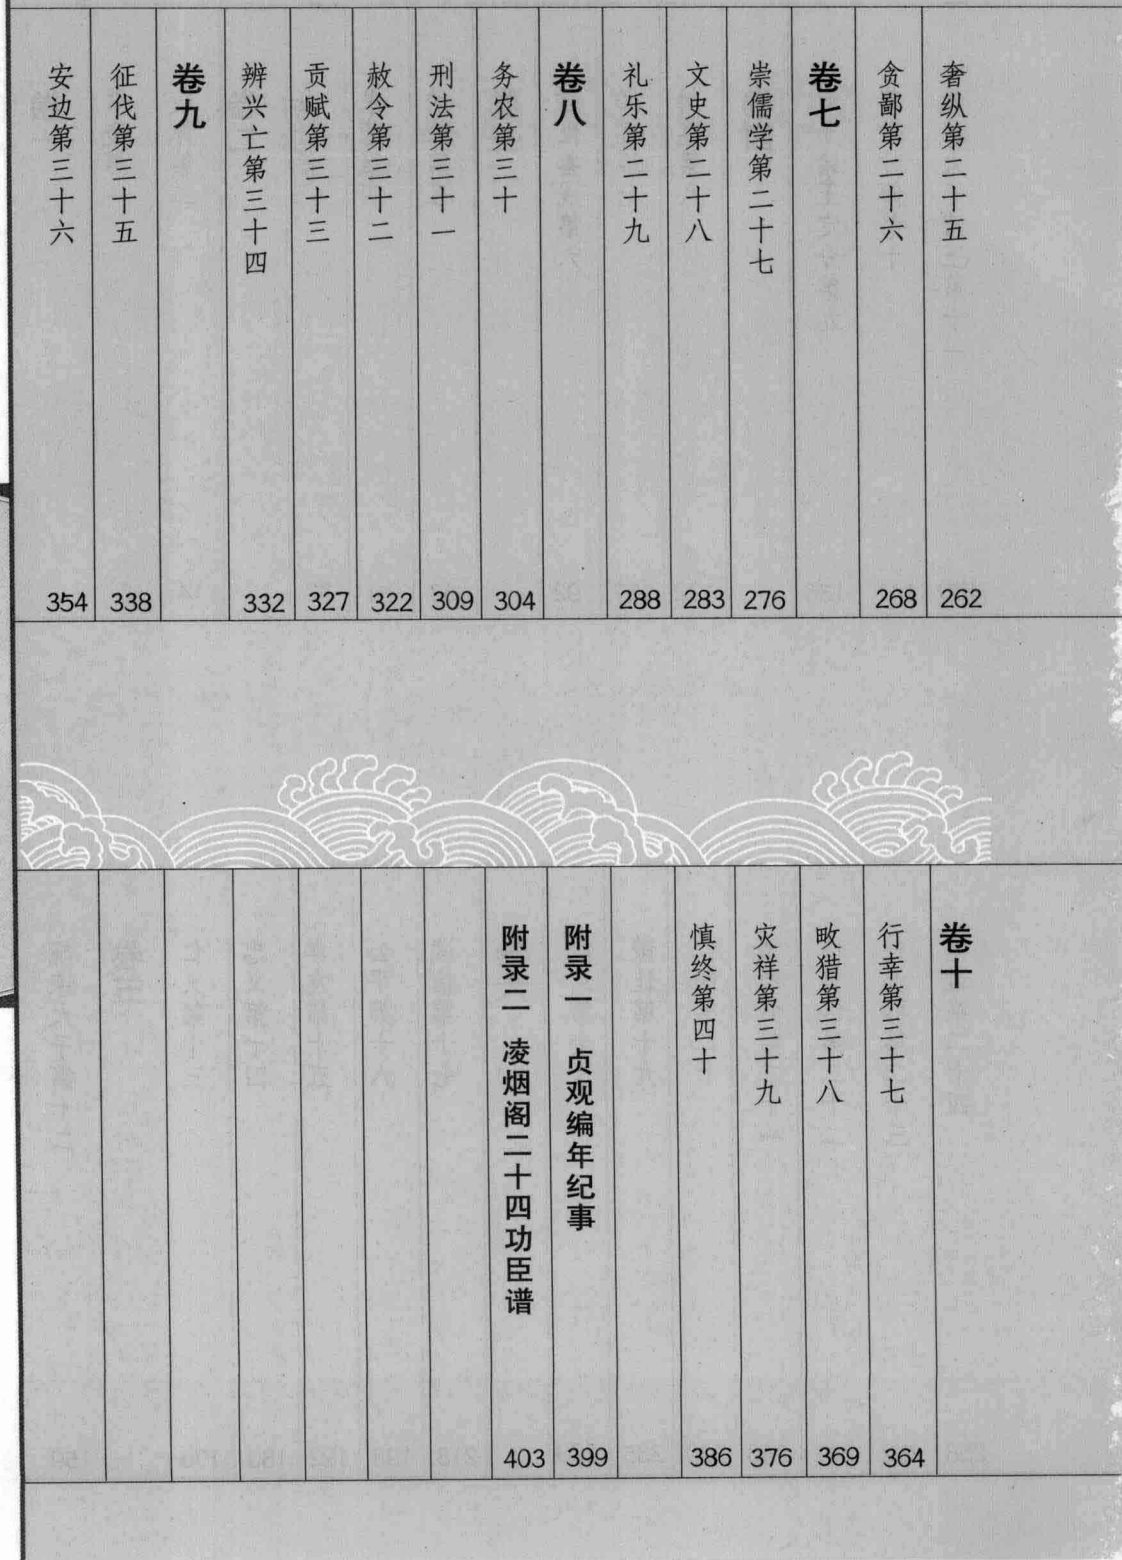 奢纵第二十五 262
贪鄙第二十六 268
卷七
崇儒学第二十七 276
文史第二十八 283
礼乐第二十九 288
卷八
务农第三十 304
刑法第三十一 309
赦令第三十二 322
贡赋第三十三 327
辨兴亡第三十四 332
卷九
征伐第三十五 338
安边第三十六 354
卷十
行幸第三十七 364
畋猎第三十八 369
灾祥第三十九 376
慎终第四十 386
附录一 贞观编年纪事 399
附录二 凌烟阁二十四功臣谱 403